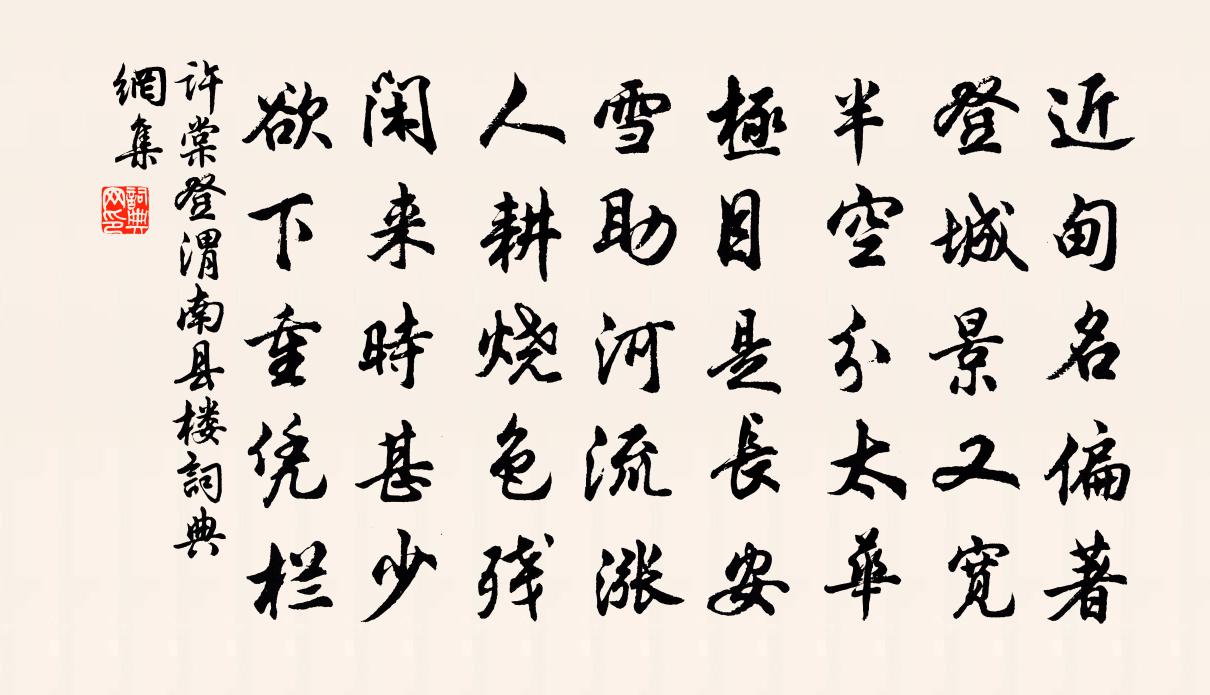 近甸名偏著
登城景又寬
半空分太華
極目是長安
雪助河流漲
人耕燒色残
闲来時甚少
欲下重凭栏
许棠登渭南县楼詞典
網集
詞典网印